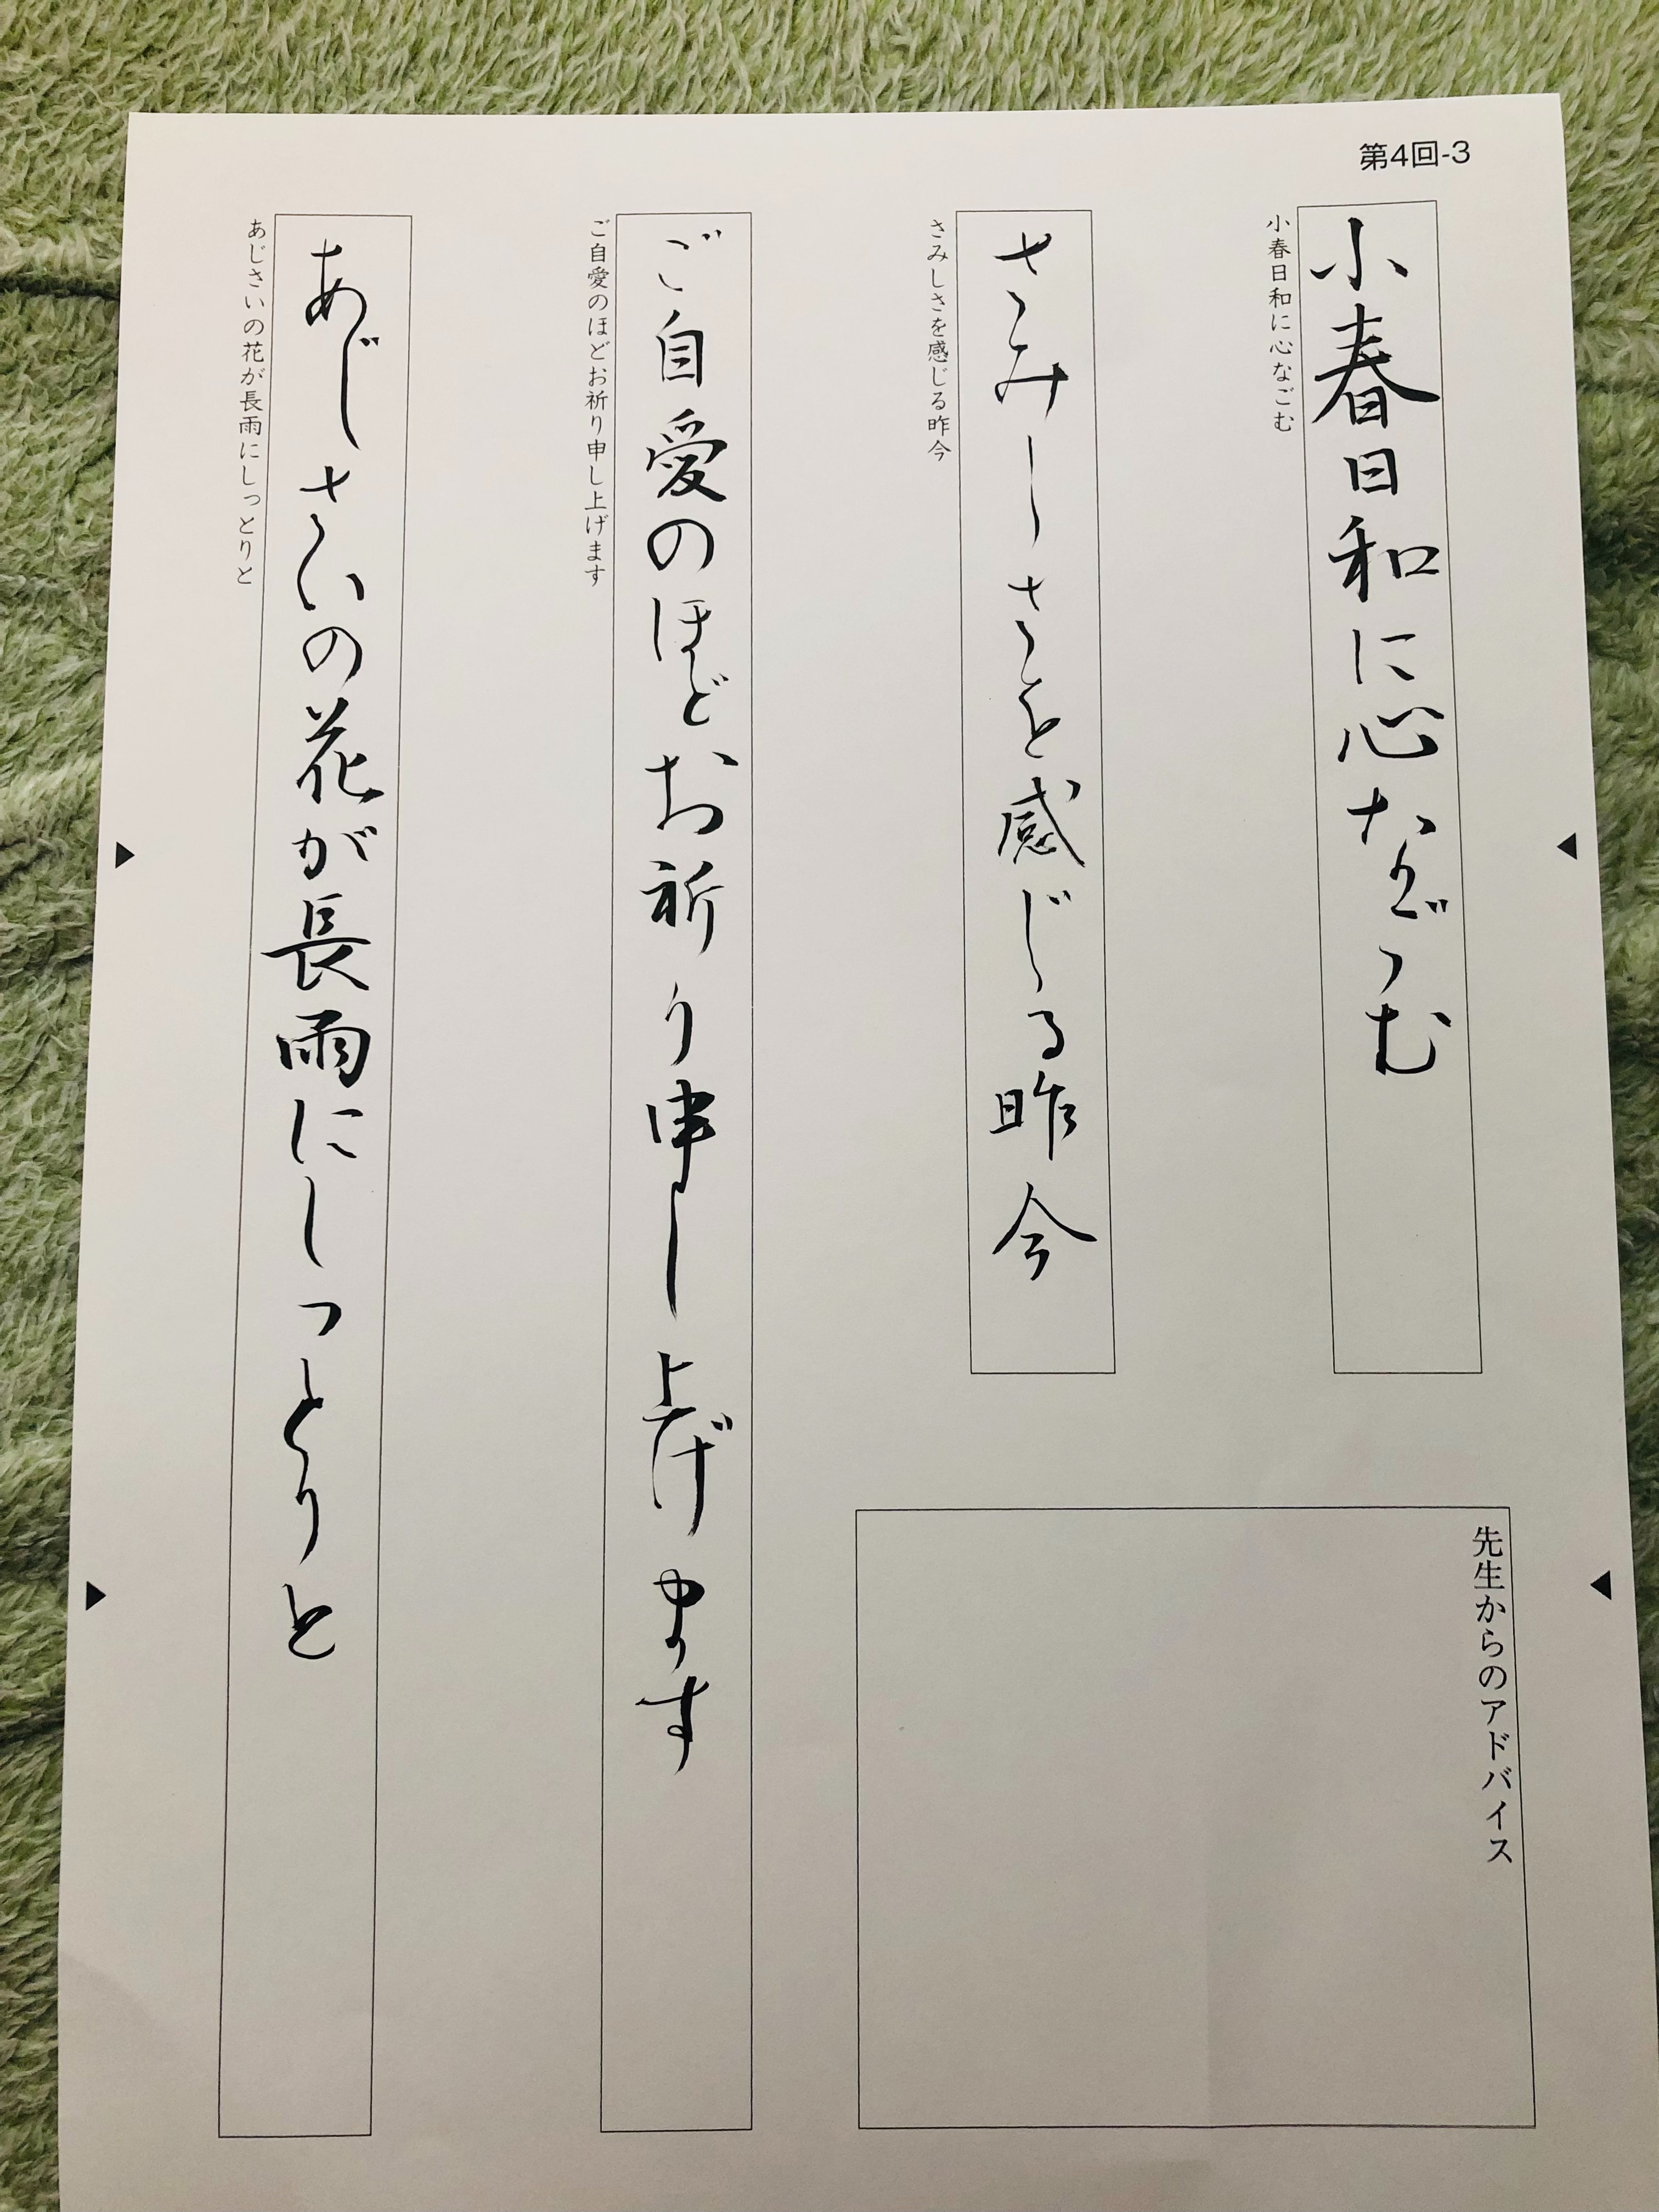 第4回-3
小春日和に心なごむ
小春日和に心なごむ
さみしさを感じる昨今
さみしさを感じる昨今
ご自愛のほどお祈り申し上げます
ご自愛のほどお祈り申し上げます
あじさいの花が長雨にしっとりと
あじさいの花が長雨にしっとりと
先生からのアドバイス